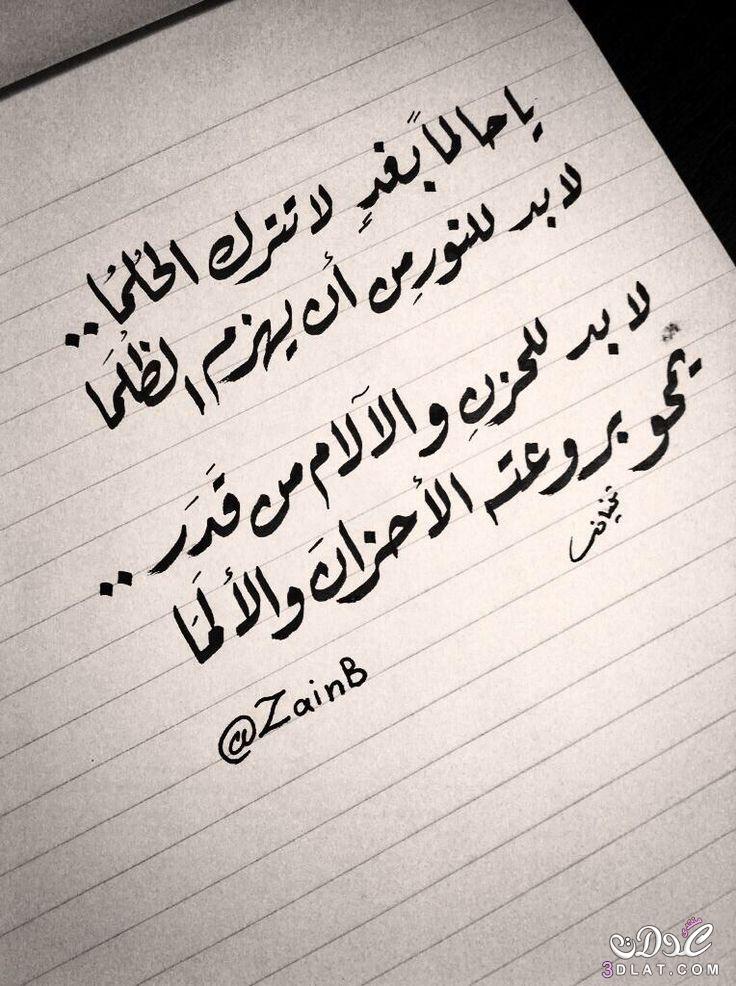 يا حالماً بغدٍ لا تترك الحُلُما..
لا بد للنورِ من أن يهزم الظُلَما
لا بد للحزنِ والآلام من قَدَر..
يمحو بروعته الأحزانَ والألمَا
@ZainB
منتدى
عدلات
3DLAT.COM